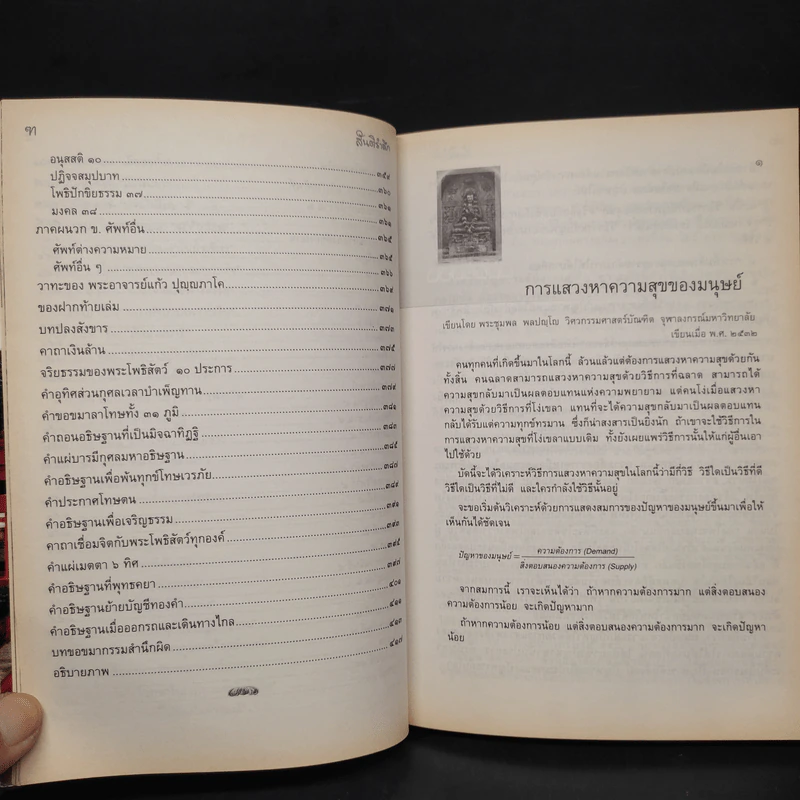 ฑ
อนุสสติ ๑๐ ๓๕๙
ปฏิจจสมุปบาท ๓๖๐
โพธิปักขิยธรรม ๓๗ ๓๖๑
มงคล ๓๘ ๓๖๑
ภาคผนวก ข. ศัพท์อื่น ๓๖๕
ศัพท์ต่างความหมาย ๓๖๕
ศัพท์อื่น ๆ ๓๖๖
วาทะของ พระอาจารย์แก้ว ปุญฺญภาโค ๓๖๙
ของฝากท้ายเล่ม ๓๗๑
บทปลงสังขาร ๓๗๓
คาถาเงินล้าน ๓๗๕
จริยธรรมของพระโพธิสัตว์ ๑๐ ประการ ๓๗๘
คำอุทิศส่วนกุศลเวลาบำเพ็ญทาน ๓๗๙
คำขอขมาลาโทษทั้ง ๓๑ ภูมิ ๓๘๑
คำถอนอธิษฐานที่เป็นมิจฉาทิฏฐิ ๓๘๓
คำแผ่บารมีกุศลมหาอธิษฐาน ๓๘๕
คำอธิษฐานเพื่อพ้นทุกข์โทษเวรภัย ๓๘๗
คำประกาศโทษตน
คำอธิษฐานเพื่อเจริญธรรม ๓๙๑
คาถาเชื่อมจิตกับพระโพธิสัตว์ทุกองค์
คำแผ่เมตตา ๖ ทิศ ๓๙๕
คำอธิษฐานที่พุทธคยา
คำอธิษฐานย้ายบัญชีทองคำ ๔๐๑
คำอธิษฐานเมื่อออกรถและเดินทางไกล ๔๑๑
บทขอขมากรรมสำนึกผิด ๔๑๓
อธิบายภาพ ๔๑๗
๑
การแสวงหาความสุขของมนุษย์
เขียนโดย พระชุมพล พลปญฺโญ วิศวกรรมศาสตร์บัณฑิต จุฬาลงกรณ์มหาวิทยาลัย
เขียนเมื่อ พ.ศ. ๒๕๓๒
คนทุกคนที่เกิดขึ้นมาในโลกนี้ ล้วนแล้วแต่ต้องการแสวงหาความสุขด้วยกัน
ทั้งสิ้น คนฉลาดสามารถแสวงหาความสุขด้วยวิธีการที่ฉลาด สามารถได้
ความสุขกลับมาเป็นผลตอบแทนแห่งความพยายาม แต่คนโง่เมื่อแสวงหา
ความสุขด้วยวิธีการที่โง่เขลา แทนที่จะได้ความสุขกลับมาเป็นผลตอบแทน
กลับได้รับแต่ความทุกข์ทรมาน ซึ่งก็น่าสงสารเป็นยิ่งนัก ถ้าเขาจะใช้วิธีการใน
การแสวงหาความสุขที่โง่เขลาแบบเดิม ทั้งยังเผยแพร่วิธีการนั้นให้แก่ผู้อื่นเอา
ไปใช้ด้วย
บัดนี้จะได้วิเคราะห์วิธีการแสวงหาความสุขในโลกนี้ว่ามีกี่วิธี วิธีใดเป็นวิธีที่ดี
วิธีใดเป็นวิธีที่ไม่ดี และใครกำลังใช้วิธีนั้นอยู่
จะขอเริ่มต้นวิเคราะห์ด้วยการแสดงสมการของปัญหาของมนุษย์ขึ้นมาเพื่อให้
เห็นกันได้ชัดเจน
ปัญหาของมนุษย์ = ความต้องการ (Demand)
สิ่งตอบสนองความต้องการ (Supply)
จากสมการนี้ เราจะเห็นได้ว่า ถ้าหากความต้องการมาก แต่สิ่งตอบสนอง
ความต้องการน้อย จะเกิดปัญหามาก
ถ้าหากความต้องการน้อย แต่สิ่งตอบสนองความต้องการมาก จะเกิดปัญหา
น้อย